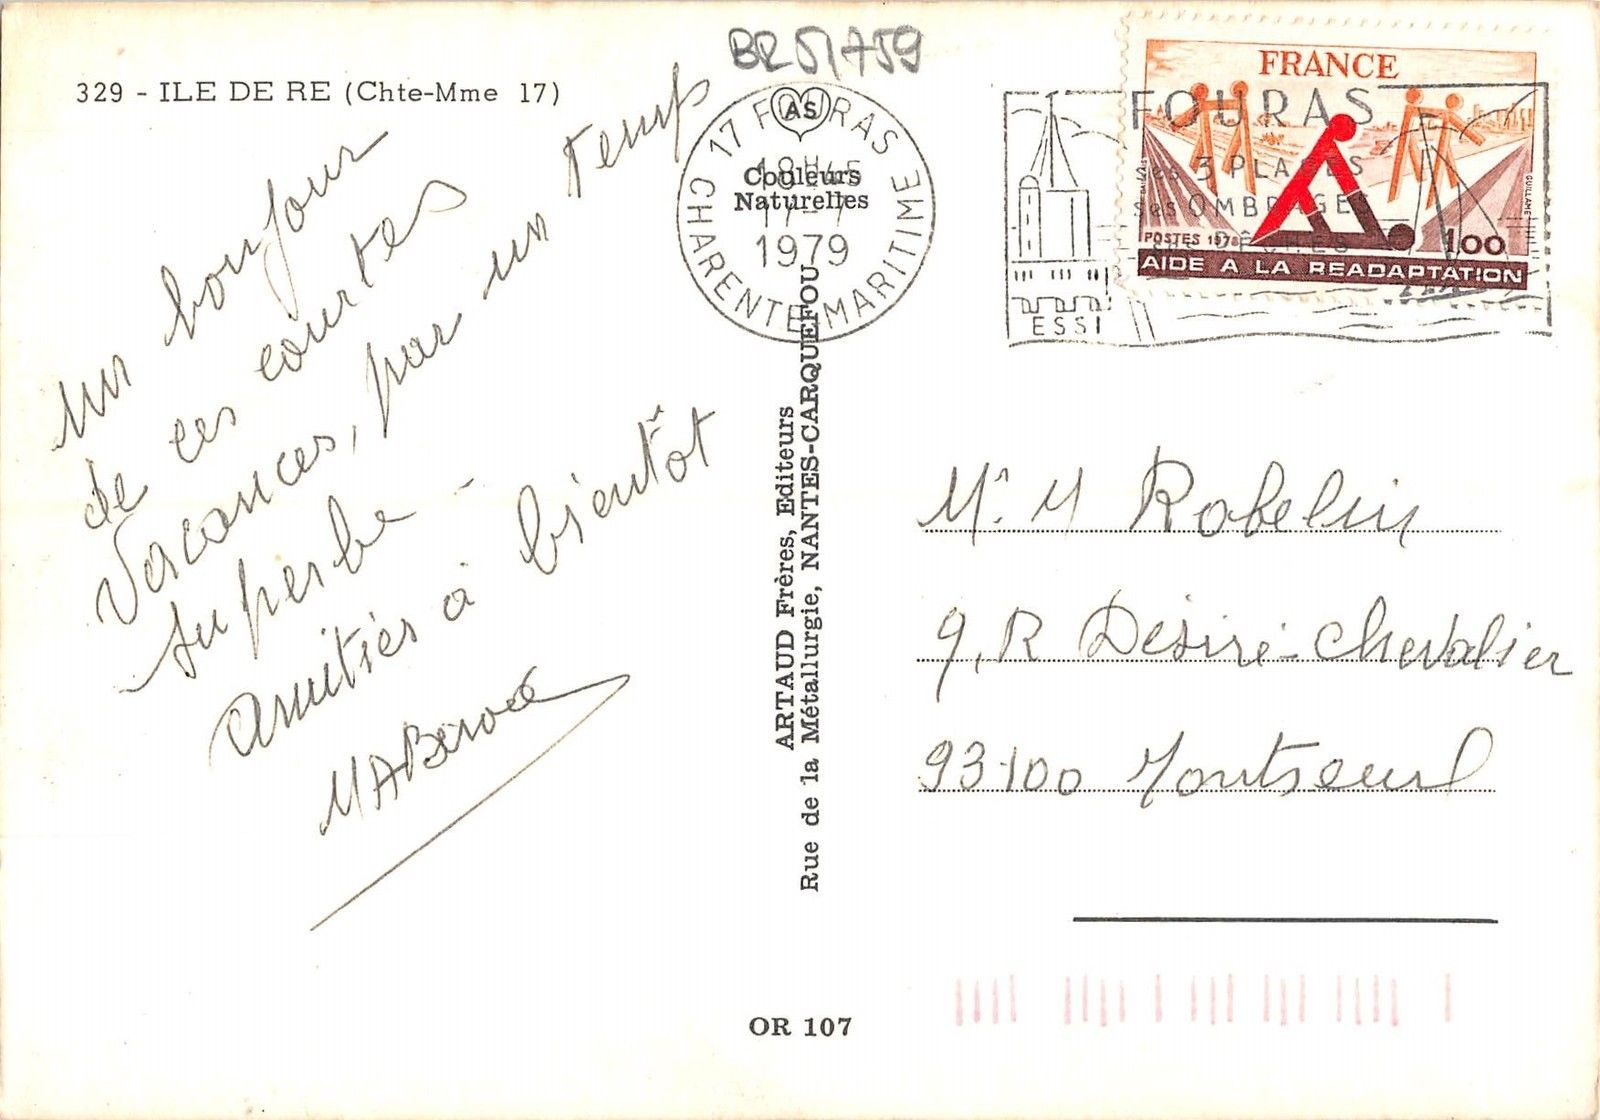 BR51759
329 - ILE DE RE (Chte-Mme 17)
un bonjour
de ces courtes
Vacances, par un temps
superbe -
Amitiés à bientôt
AS
Couleurs
Naturelles
17 FOURAS
18H45
17-7
1979
CHARENTE-MARITIME
FOURAS
ses 3 PLAGES
ses OMBRAGES
ESSI
FRANCE
POSTES 1978
1,00
AIDE A LA READAPTATION
ARTAUD Frères, Editeurs
Rue de la Métallurgie, NANTES-CARQUEFOU
Mr. M Robelin
9, R Désiré-Chevalier
93100 Montreuil
OR 107